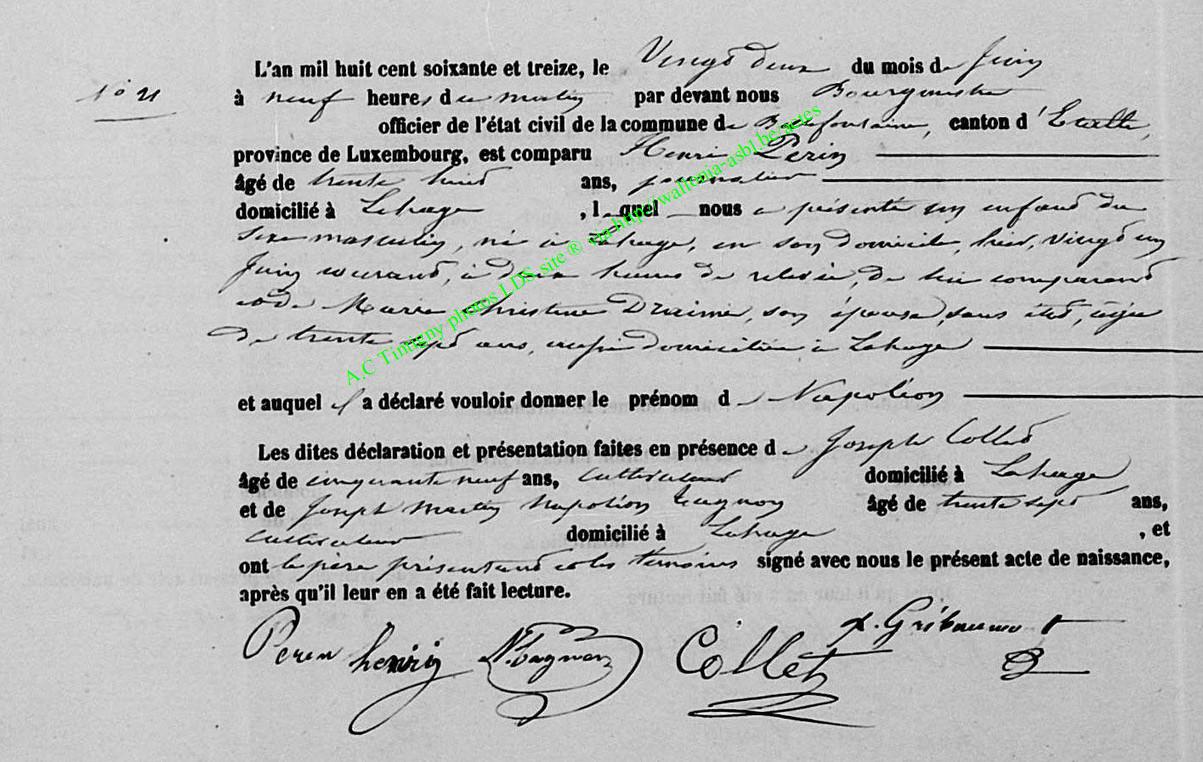 N° 21
L'an mil huit cent soixante et treize, le Vingt deux du mois de Juin
à neuf heures du matin par devant nous Bourgmestre
officier de l'état civil de la commune de Bellefontaine, canton d'Etalle,
province de Luxembourg, est comparu Henri Perin
âgé de trente huit ans, journalier
domicilié à Lahage, lequel nous a présenté un enfant du
sexe masculin, né à Lahage, en son domicile, hier, vingt un
Juin courant, à deux heures de relevée, de lui comparant
et de Marie Christine Draime, son épouse, sans état, âgée
de trente sept ans, aussi domiciliée à Lahage
et auquel il a déclaré vouloir donner le prénom de Napoléon
Les dites déclaration et présentation faites en présence de Joseph Collet
âgé de cinquante neuf ans, cultivateur domicilié à Lahage
et de Joseph Martin Napoléon Tagnon âgé de trente sept ans,
cultivateur domicilié à Lahage, et
ont le père présentant et les témoins signé avec nous le présent acte de naissance,
après qu'il leur en a été fait lecture.
Peren henriy N. Tagnon Collet Gribaumont
A.C Tintigny photos LDS site ® via http://wallonia-asbl.be/actes